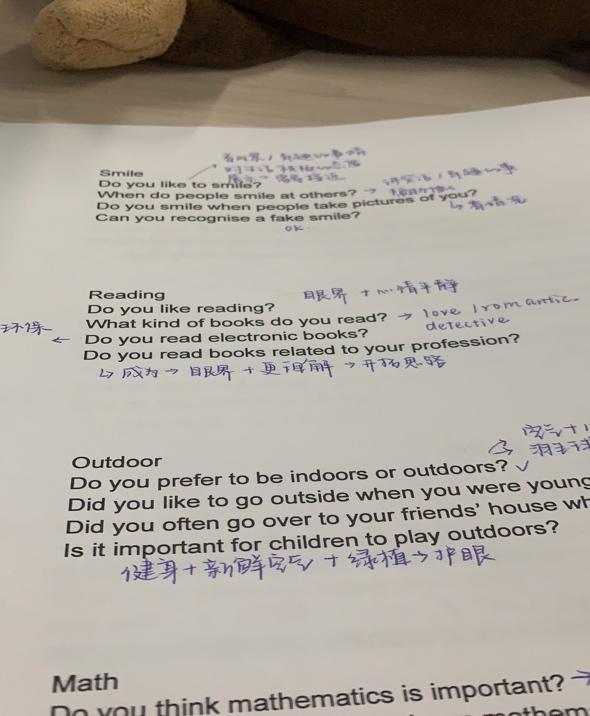 Smile
Do you like to smile?
When do people smile at others? →
Do you smile when people take pictures of you?
↳ 看情况
Can you recognise a fake smile?
OK.
Reading
眼界 + 心情平静
Do you like reading?
What kind of books do you read? → love / romantic
detective
环保 ← Do you read electronic books?
Do you read books related to your profession?
↳ 成为 → 眼界 + 更理解 → 开拓思路
Outdoor
Do you prefer to be indoors or outdoors? ✓
羽毛球
Did you like to go outside when you were young
Did you often go over to your friends' house wh
Is it important for children to play outdoors?
健身 + 新鲜空气 + 绿植 → 护眼
Math
Do you think mathematics is important? →